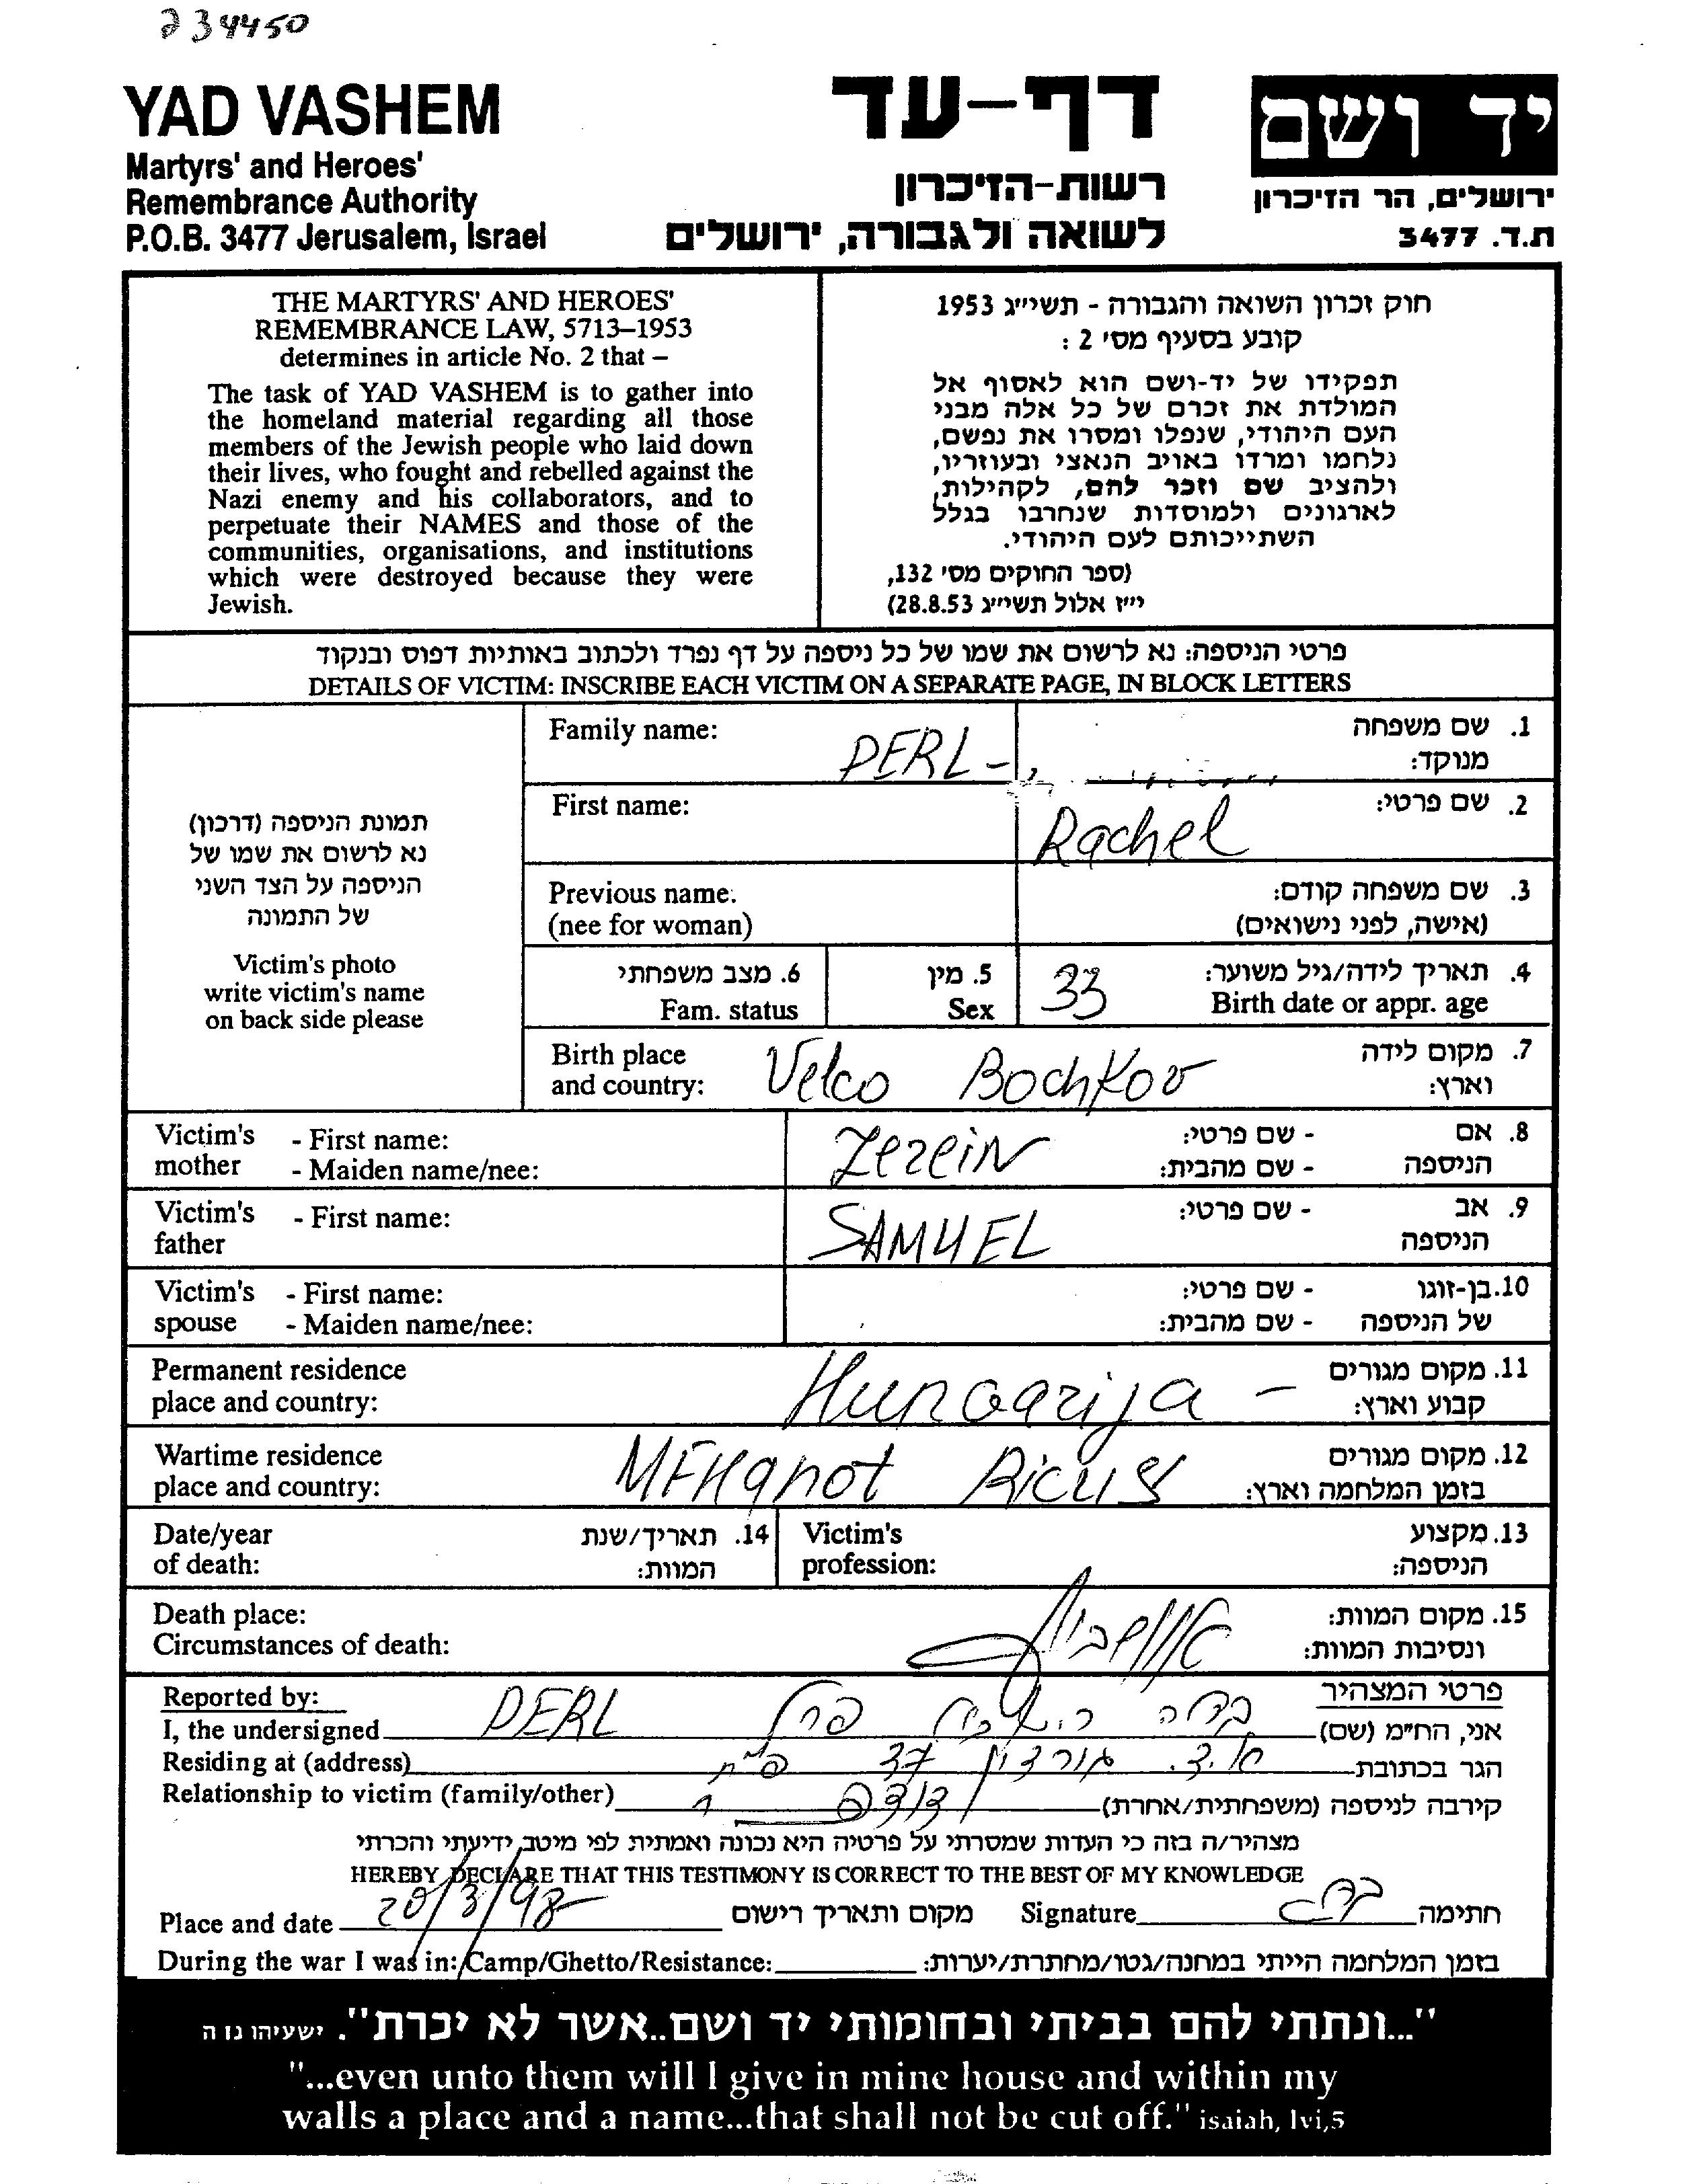 234450
YAD VASHEM
Martyrs' and Heroes'
Remembrance Authority
P.O.B. 3477 Jerusalem, Israel
דף-עד
רשות-הזיכרון
לשואה ולגבורה, ירושלים
יד ושם
ירושלים, הר הזיכרון
ת.ד. 3477
THE MARTYRS' AND HEROES'
REMEMBRANCE LAW, 5713–1953
determines in article No. 2 that –
The task of YAD VASHEM is to gather into
the homeland material regarding all those
members of the Jewish people who laid down
their lives, who fought and rebelled against the
Nazi enemy and his collaborators, and to
perpetuate their NAMES and those of the
communities, organisations, and institutions
which were destroyed because they were
Jewish.
חוק זכרון השואה והגבורה - תשי״ג 1953
קובע בסעיף מס׳ 2 :
תפקידו של יד-ושם הוא לאסוף אל
המולדת את זכרם של כל אלה מבני
העם היהודי, שנפלו ומסרו את נפשם,
נלחמו ומרדו באויב הנאצי ובעוזריו,
ולהציב שם וזכר להם, לקהילות,
לארגונים ולמוסדות שנחרבו בגלל
השתייכותם לעם היהודי.
(ספר החוקים מס׳ 132,
י״ז אלול תשי״ג 28.8.53)
פרטי הניספה: נא לרשום את שמו של כל ניספה על דף נפרד ולכתוב באותיות דפוס ובנקוד
DETAILS OF VICTIM: INSCRIBE EACH VICTIM ON A SEPARATE PAGE, IN BLOCK LETTERS
תמונת הניספה (דרכון)
נא לרשום את שמו של
הניספה על הצד השני
של התמונה
Victim's photo
write victim's name
on back side please
Family name: PERL - 1. שם משפחה
מנוקד:
First name: Rachel 2. שם פרטי:
Previous name: 3. שם משפחה קודם:
(nee for woman) (אישה, לפני נישואים)
6. מצב משפחתי 5. מין 33 4. תאריך לידה/גיל משוער:
Fam. status Sex Birth date or appr. age
Birth place Velco Bochkov 7. מקום לידה
and country: וארץ:
Victim's - First name: Zerein - שם פרטי: 8. אם
mother - Maiden name/nee: - שם מהבית: הניספה
Victim's - First name: SAMUEL - שם פרטי: 9. אב
father הניספה
Victim's - First name: - שם פרטי: 10. בן-זוגו
spouse - Maiden name/nee: - שם מהבית: של הניספה
Permanent residence 11. מקום מגורים
place and country: Hungarija - קבוע וארץ:
Wartime residence 12. מקום מגורים
place and country: בזמן המלחמה וארץ:
Date/year 14. תאריך/שנת Victim's 13. מקצוע
of death: המוות: profession: הניספה:
Death place: 15. מקום המוות:
Circumstances of death: ונסיבות המוות:
Reported by: פרטי המצהיר
I, the undersigned PERL פרל אני, הח״מ (שם)
Residing at (address) א.ד. גורדון 37 פ״ת הגר בכתובת
Relationship to victim (family/other) קירבה לניספה (משפחתית/אחרת)
מצהיר/ה בזה כי העדות שמסרתי על פרטיה היא נכונה ואמתית לפי מיטב ידיעתי והכרתי
HEREBY DECLARE THAT THIS TESTIMONY IS CORRECT TO THE BEST OF MY KNOWLEDGE
Place and date 20/3/98 מקום ותאריך רישום Signature חתימה
During the war I was in: Camp/Ghetto/Resistance: בזמן המלחמה הייתי במחנה/גטו/מחתרת/יערות:
"...ונתתי להם בביתי ובחומותי יד ושם..אשר לא יכרת". ישעיהו נו ה
"...even unto them will I give in mine house and within my
walls a place and a name...that shall not be cut off." isaiah, lvi,5